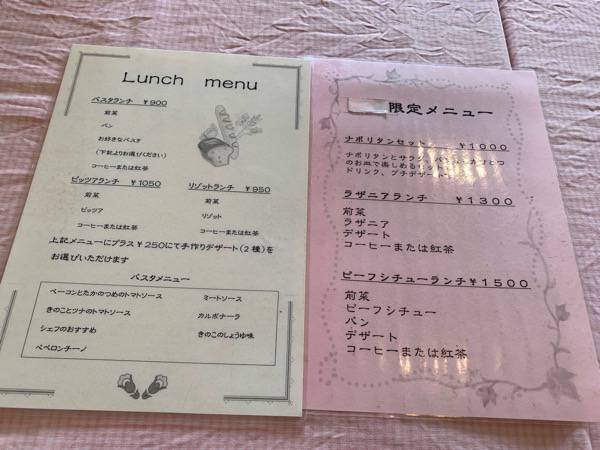 Lunch menu
パスタランチ ￥900
前菜
パン
お好きなパスタ
(下記よりお選びください)
コーヒーまたは紅茶
ピッツアランチ ￥1050
前菜
ピッツア
コーヒーまたは紅茶
リゾットランチ ￥950
前菜
リゾット
コーヒーまたは紅茶
上記メニューにプラス￥250にて手作りデザート(2種)を
お選びいただけます
パスタメニュー
ベーコンとたかのつめのトマトソース
ミートソース
きのことツナのトマトソース
カルボナーラ
シェフのおすすめ
きのこのしょうゆ味
ペペロンチーノ
限定メニュー
ナポリタンセット ￥1000
ナポリタンとサラダ、
のお皿で楽しめるセット
ドリンク、プチデザート
ラザニアランチ ￥1300
前菜
ラザニア
デザート
コーヒーまたは紅茶
ビーフシチューランチ￥1500
前菜
ビーフシチュー
パン
デザート
コーヒーまたは紅茶